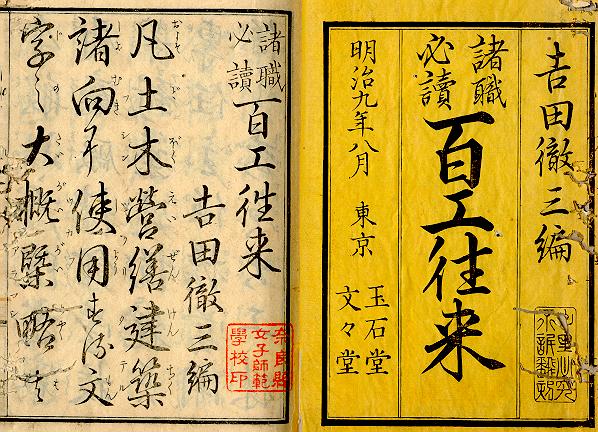 吉田徹三編
諸職
必讀
百工往来
明治九年八月 東京
玉石堂
文々堂
諸職
必讀
百工往来
吉田徹三編
凡土木営繕建築
諸向ニ使用する文
字之大概槩略を
奈良縣
女子師範
學校印